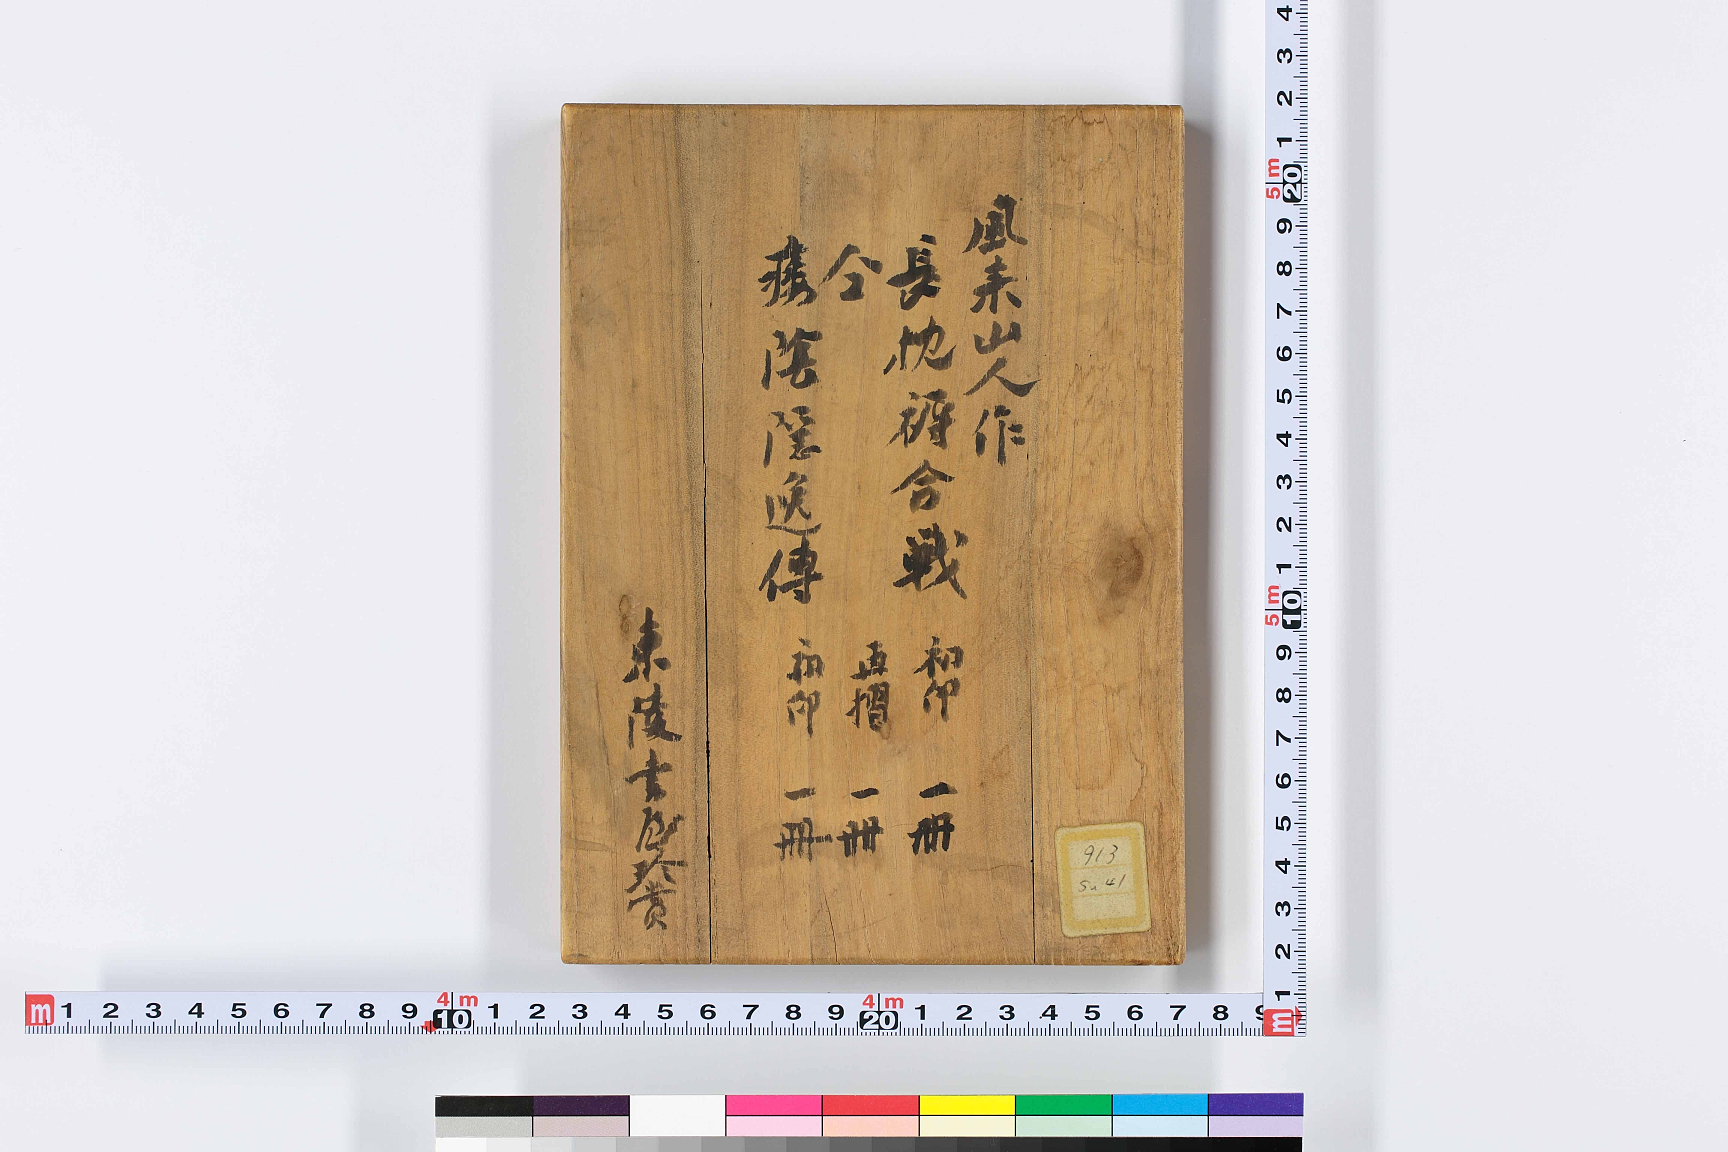 風来山人作
長枕褥合戦 初印 一冊
仝 再摺 一冊
痿陰隠逸傳 初印 一冊
東陵書屋珍賞
913
Su 41
4 3 2 1 5m 20 9 8 7 6 5 4 3 2 1 5m 10 9 8 7 6 5 4 3 2 1 m
m 1 2 3 4 5 6 7 8 9 4m 10 1 2 3 4 5 6 7 8 9 4m 20 1 2 3 4 5 6 7 8 9